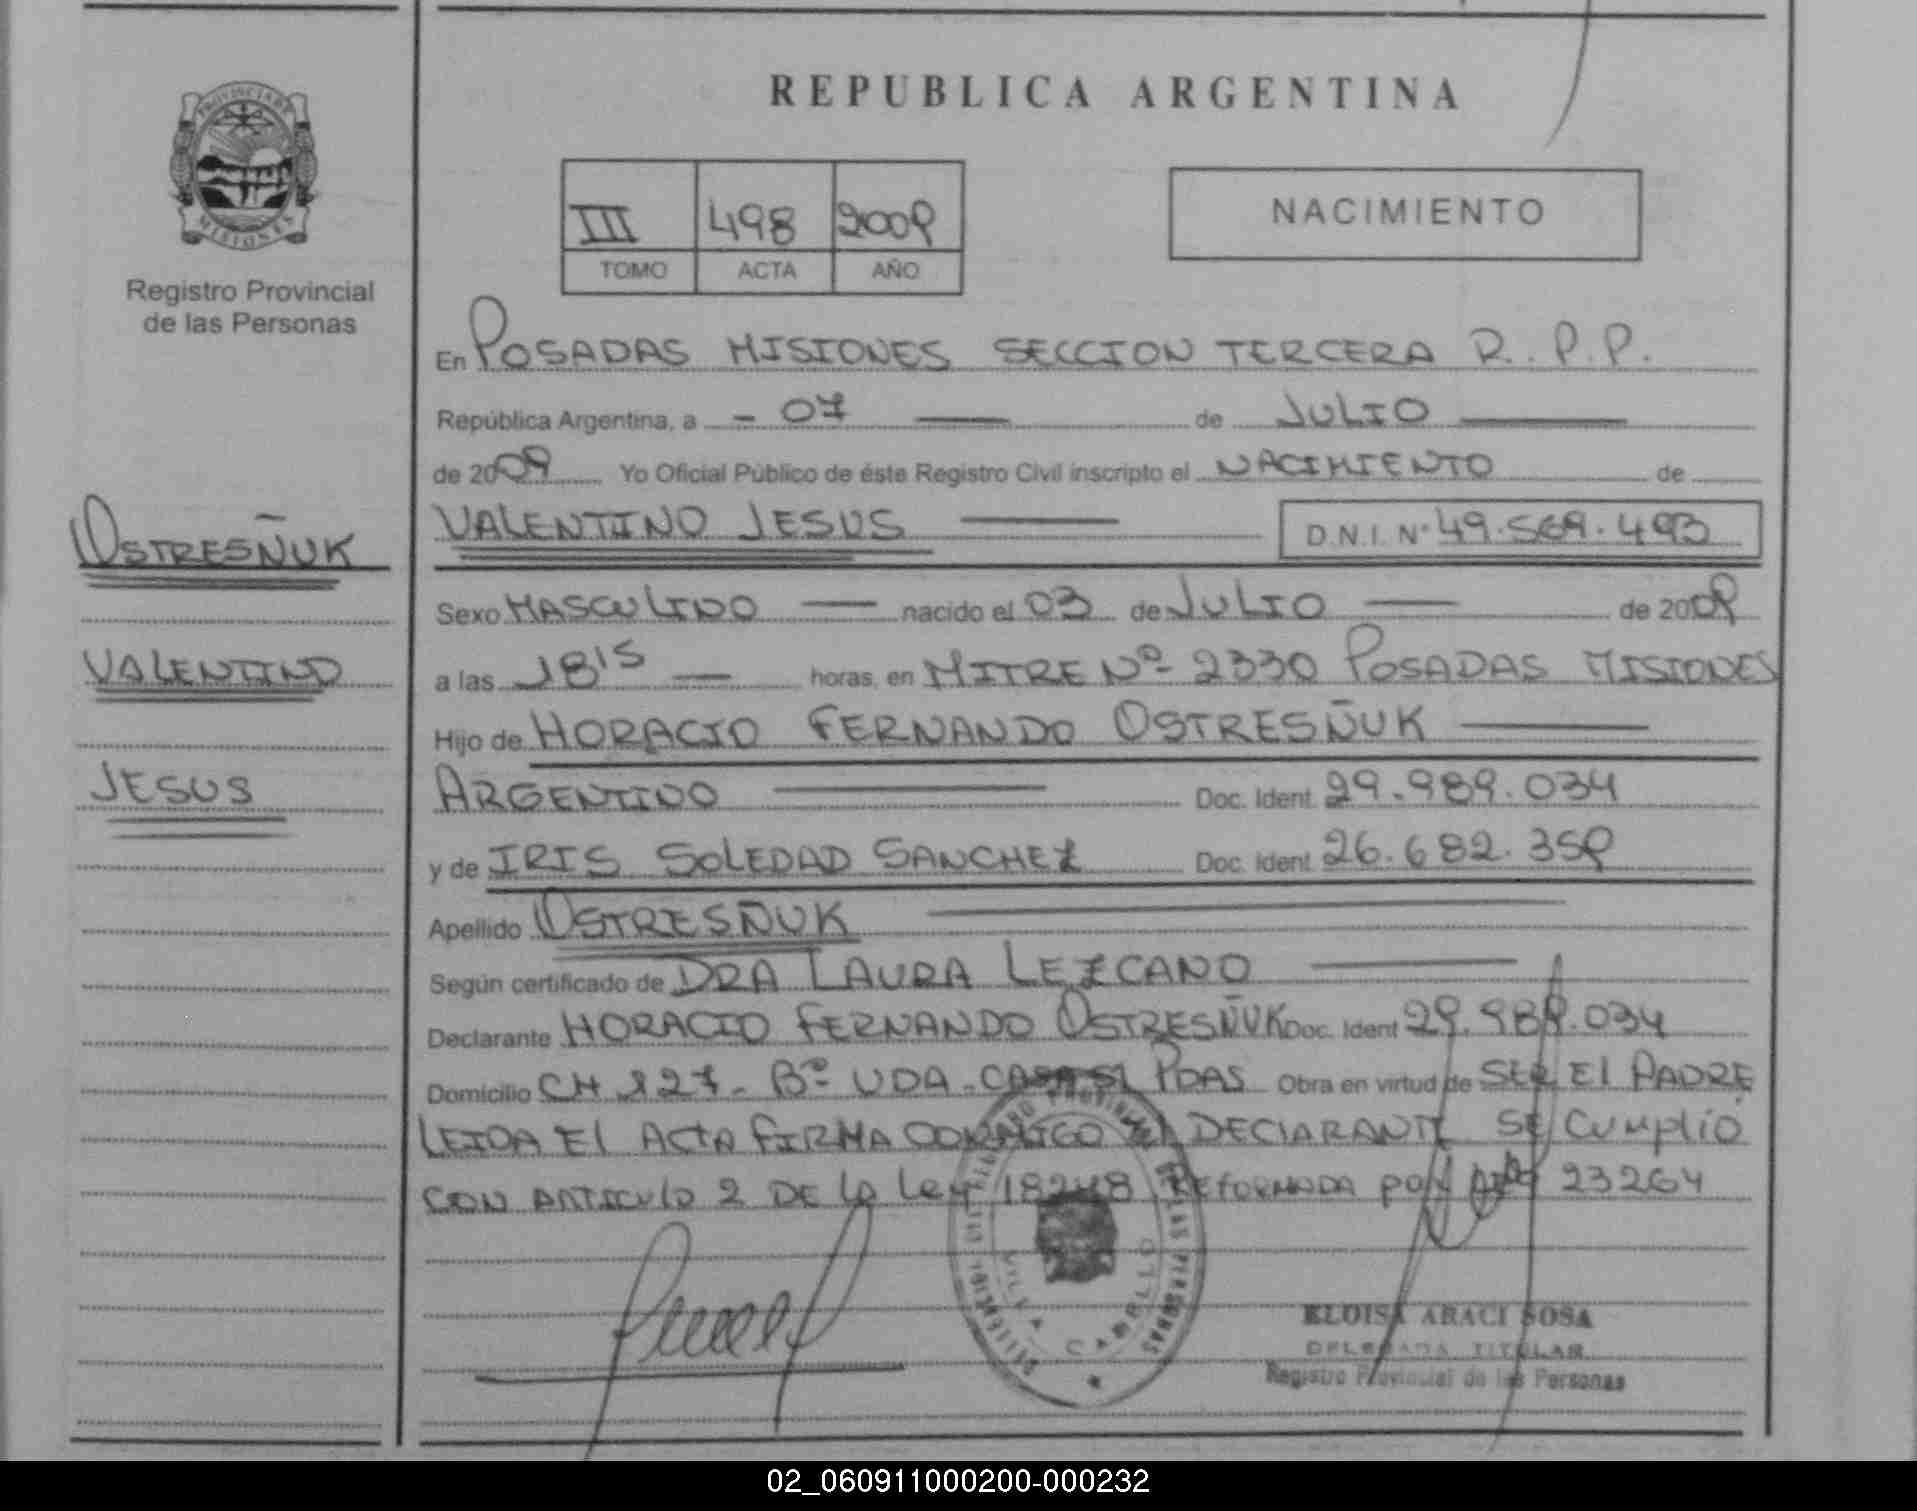 REPUBLICA ARGENTINA
PROVINCIA DE
MISIONES
Registro Provincial
de las Personas
III 498 2009
TOMO ACTA AÑO
NACIMIENTO
En POSADAS MISIONES SECCION TERCERA R. P. P.
República Argentina, a - 07 — de JULIO —
de 2009 Yo Oficial Público de éste Registro Civil inscripto el NACIMIENTO de
VALENTINO JESUS — D.N.I. Nº 49.569.493
OSTRESÑUK
VALENTINO
JESUS
Sexo MASCULINO — nacido el 03 de JULIO — de 2009
a las 18'15 — horas, en MITRE Nº 2330 POSADAS MISIONES
Hijo de HORACIO FERNANDO OSTRESÑUK —
ARGENTINO — Doc. Ident. 29.989.034
y de IRIS SOLEDAD SANCHEZ Doc. Ident. 26.682.359
Apellido OSTRESÑUK —
Según certificado de DRA LAURA LEZCANO —
Declarante HORACIO FERNANDO OSTRESÑUK Doc. Ident 29.989.034
Domicilio CH 127 - Bº UDA - CASA 51 PDAS Obra en virtud de SER El PADRE
LEIDA El ACTA FIRMA CONMIGO El DECLARANTE SE Cumplió
CON ARTICULO 2 DE LA Ley 18248 REFORMADA por 23264
VILLA CABELLO
ELOISA ARACI SOSA
DELEGADA TITULAR
Registro Provincial de las Personas
02_060911000200-000232